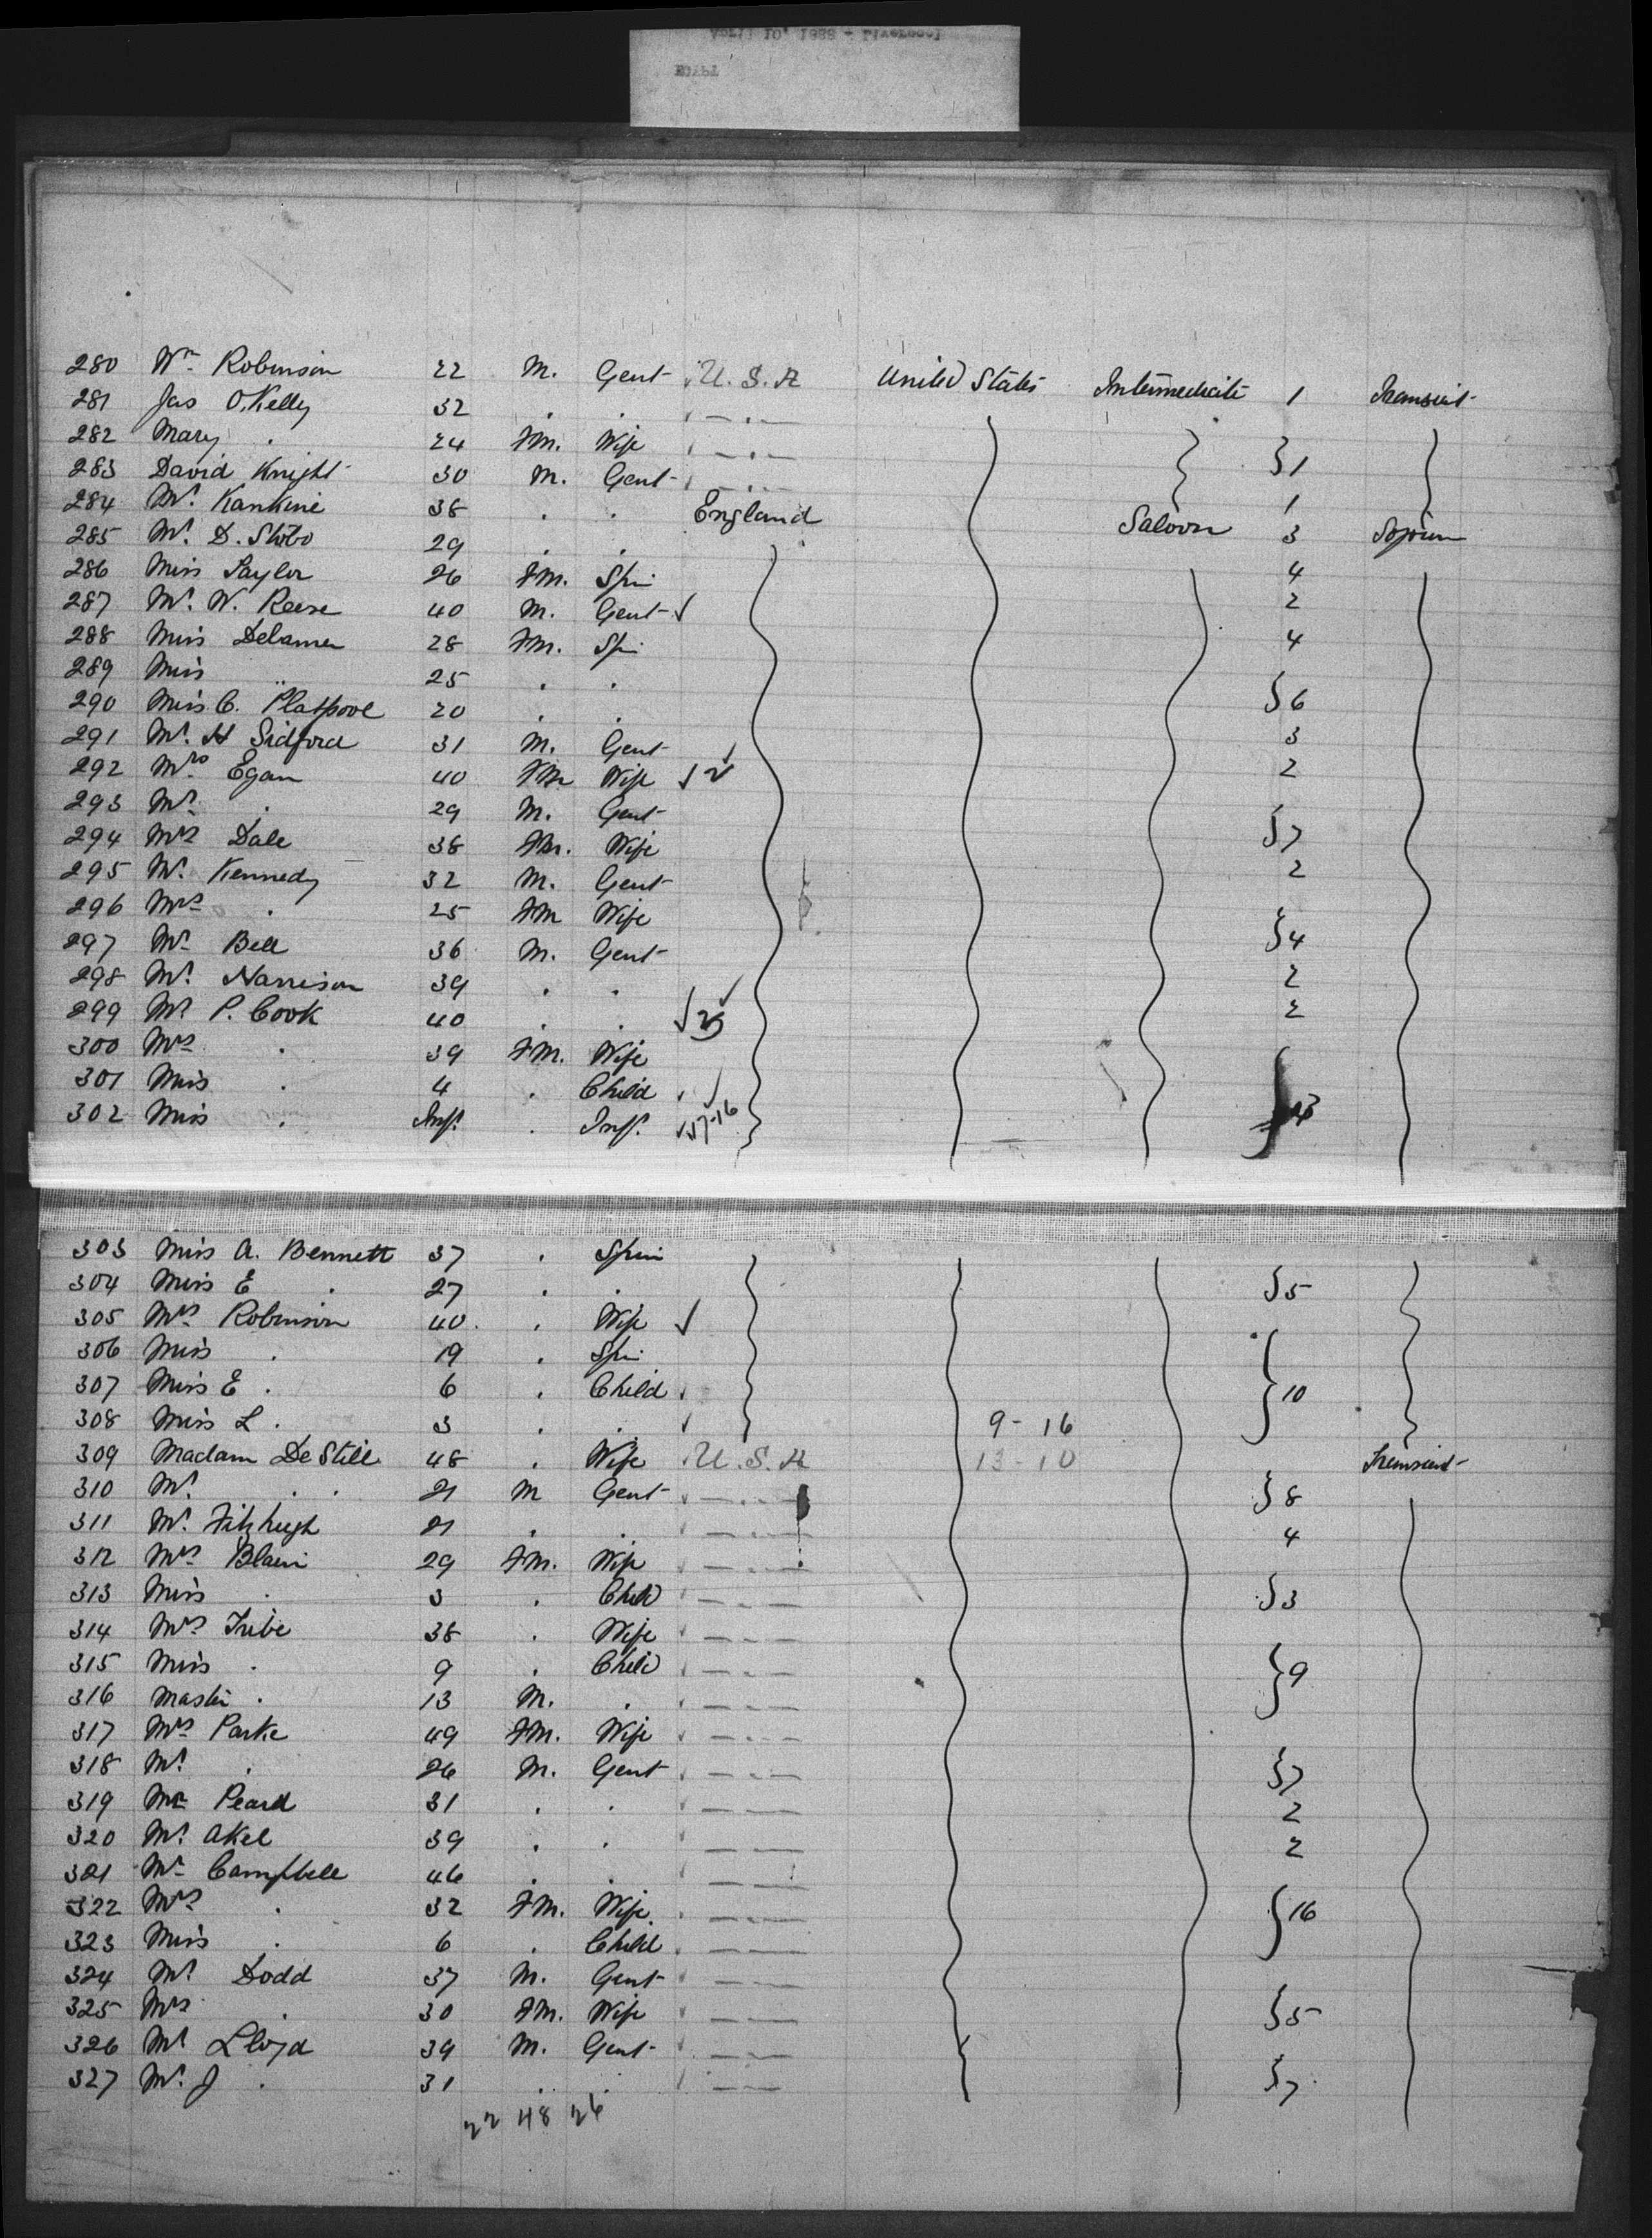 280 Wm Robinson 22 M. Gent U.S.A United States Intermediate 1 Transient
281 Jas O.Kelly 32 . . — . —
282 Mary . 24 Fm. Wife — . — } 1
283 David Knight 30 M. Gent — . —
284 Mr. Rankine 38 . . England 1
285 Mr. D. Stobo 29 . . Saloon 3 Sojourn
286 Miss Taylor 26 Fm. Spin 4
287 Mr. W. Reese 40 M. Gent 2
288 Miss Delamer 28 Fm. Spin 4
289 Miss " 25 . .
290 Miss C. Platpool 20 . . } 6
291 Mr. H Sidford 31 M. Gent 3
292 Mrs Egan 40 Fm Wife 2
293 Mr. . 29 M. Gent
294 Mrs Dale 38 Fm. Wife } 7
295 Mr. Kennedy 32 M. Gent 2
296 Mrs . 25 Fm Wife
297 Mr Bell 36 M. Gent } 4
298 Mr. Narrison 39 . . 2
299 Mr P. Cook 40 . . 2
300 Mrs . 39 Fm. Wife
301 Miss . 4 . Child
302 Miss . Inf. . Inf. 57-16
303 Miss A. Bennett 37 . Spin
304 Miss E . 27 . . } 5
305 Mrs Robinson 40 . Wife
306 Miss . 19 . Spin
307 Miss E . 6 . Child } 10
308 Miss L . 3 . . 9 - 16
309 Madam De Still 48 . Wife U.S.A 13 - 10 Transient
310 Mr. . . 21 M Gent — . — } 8
311 Mr. Fitzhugh 21 . . — . — 4
312 Mrs Blain 29 Fm. Wife — . —
313 Miss . 3 . Child — . — } 3
314 Mrs Tribe 38 . Wife — . —
315 Miss . 9 . Child — . — } 9
316 Master . 13 M. . — . —
317 Mrs Parke 49 Fm. Wife — . —
318 Mr. . 26 M. Gent — . — } 7
319 Mr Peard 31 . . — . — 2
320 Mr. Akel 39 . . — — 2
321 Mr Campbell 46 . . — —
322 Mrs . 32 Fm. Wife — — } 16
323 Miss . 6 . Child — —
324 Mr. Dodd 37 M. Gent — —
325 Mrs . 30 Fm. Wife — — } 5
326 Mr Lloyd 39 M. Gent — —
327 Mr. J . 31 . . — — } 7
22 48 26